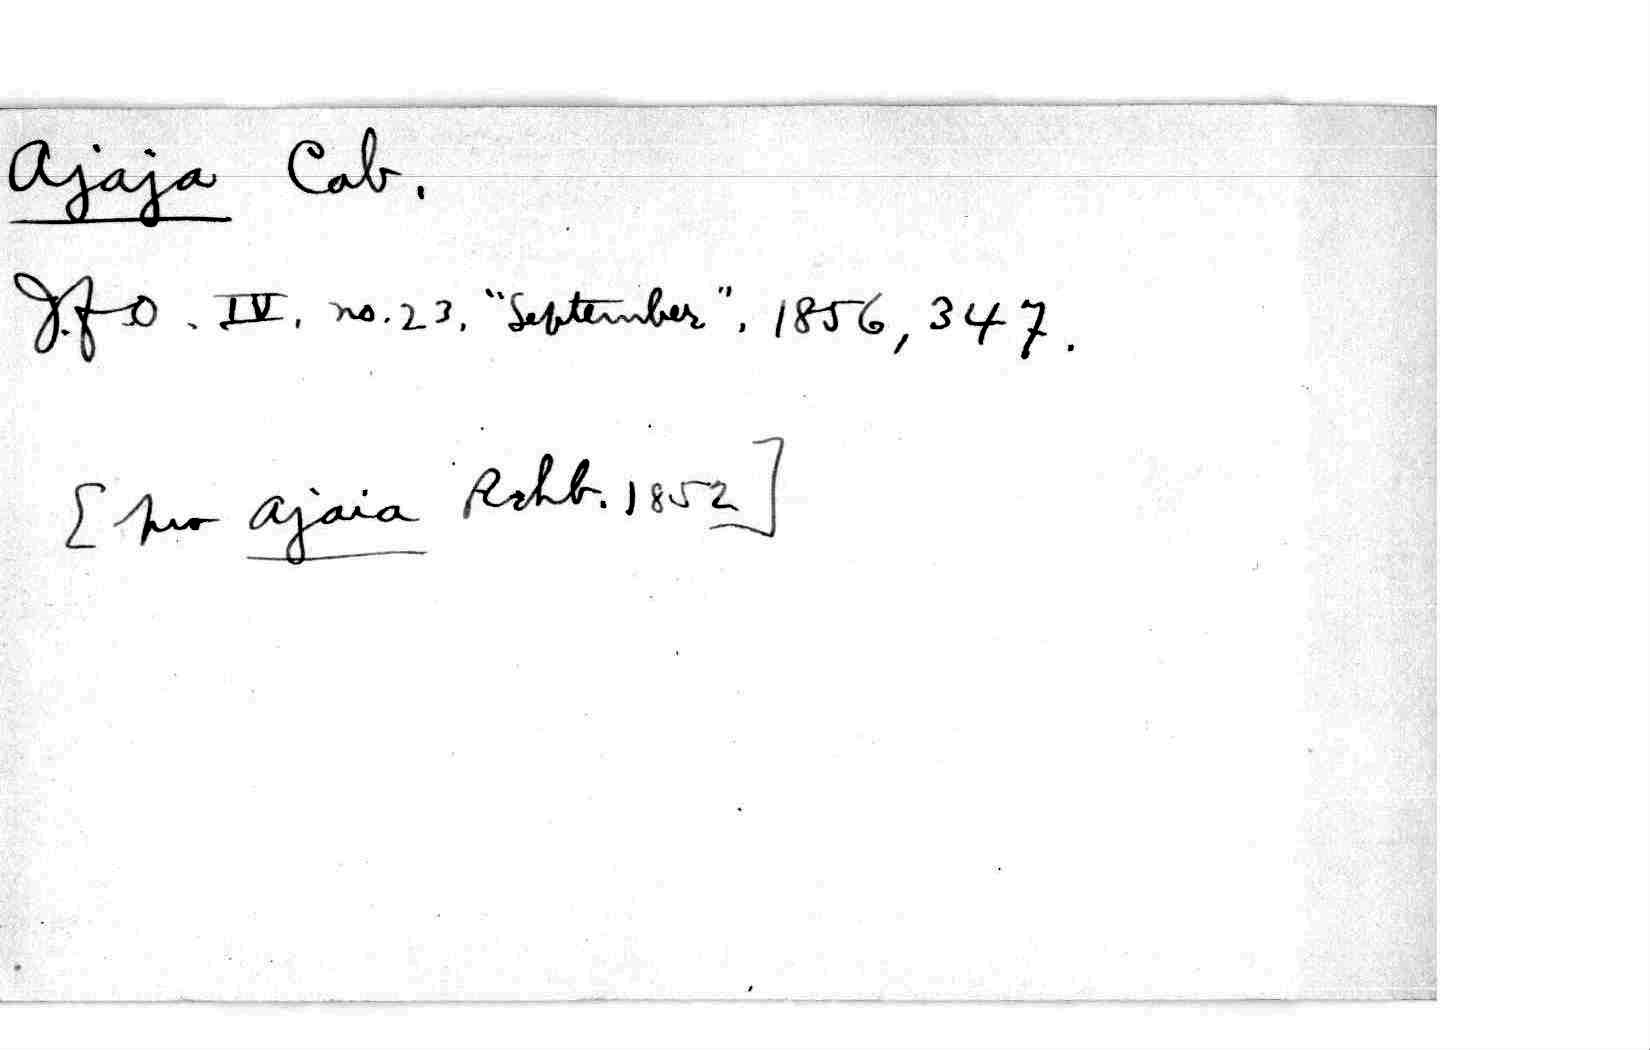 Ajaja Cab.
J.f.O. IV, no. 23, "September", 1856, 347.
[pro Ajaia Rchb. 1852]